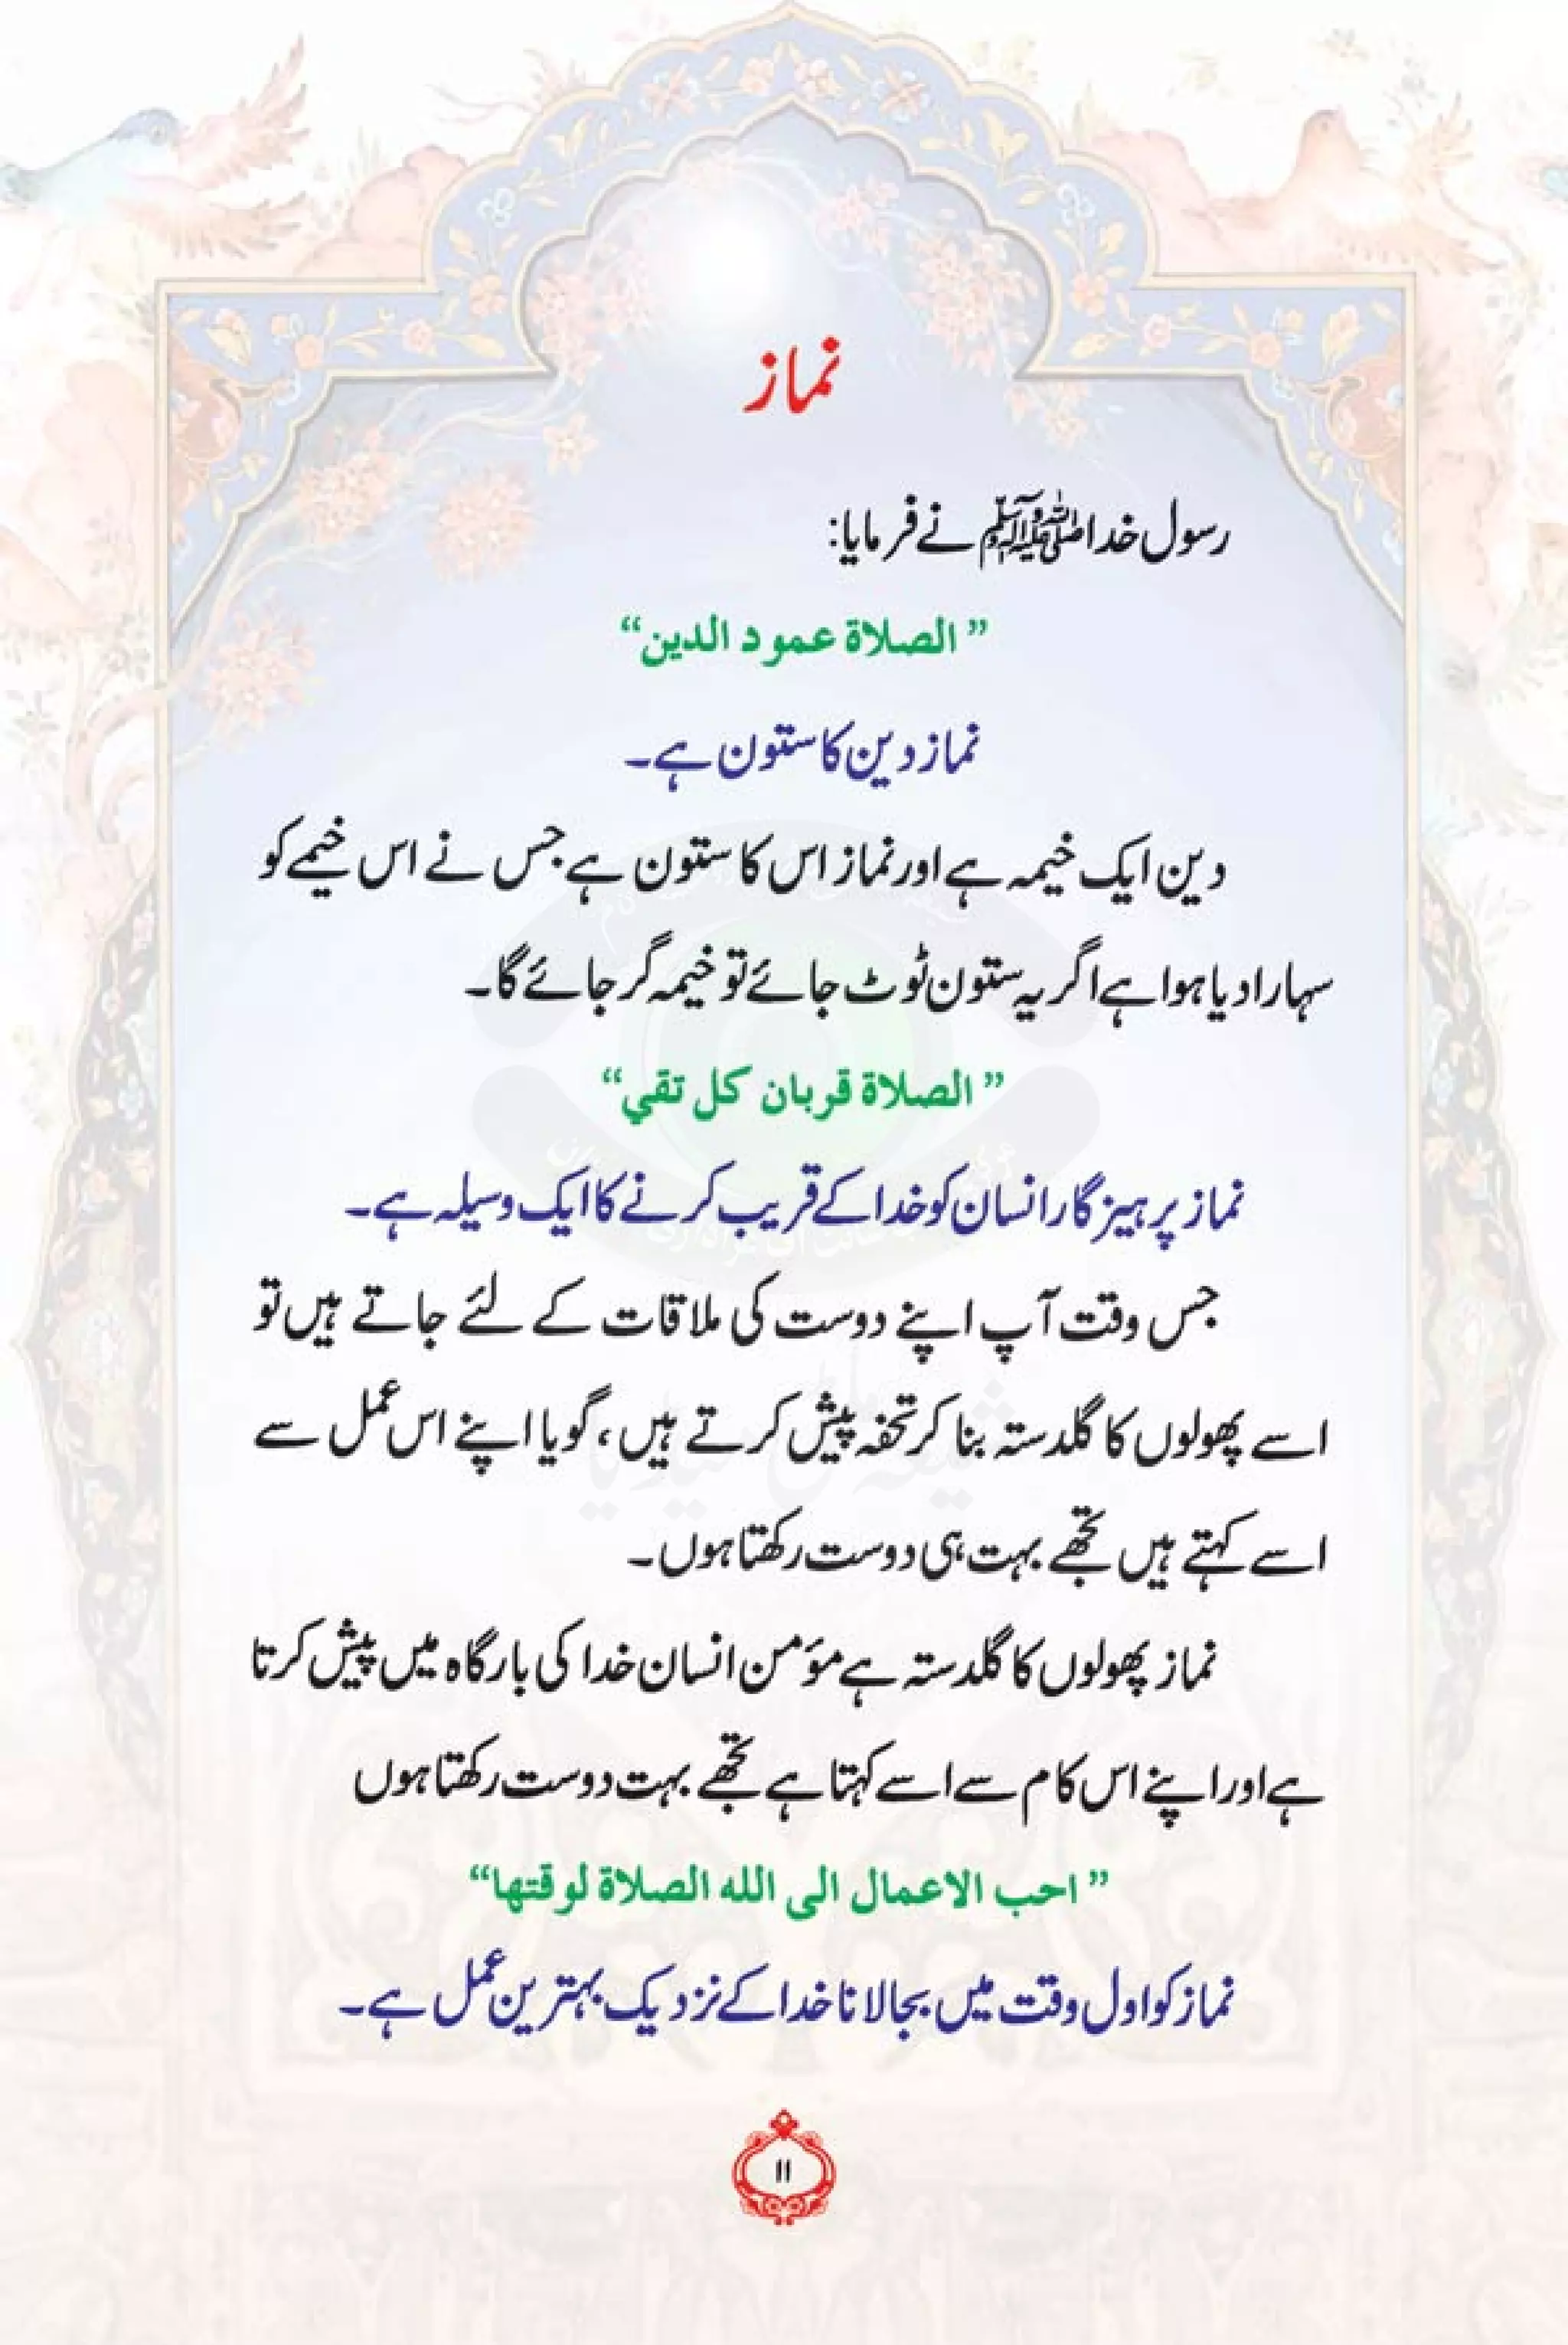 نماز
رسول خداﷺ نے فرمایا:
” الصلاة عمود الدين“
نماز دین کا ستون ہے۔
دین ایک خیمہ ہے اور نماز اس کا ستون ہے جس نے اس خیمے کو
سہارا دیا ہوا ہے اگر یہ ستون ٹوٹ جائے تو خیمہ گر جائے گا۔
” الصلاة قربان كل تقي“
نماز پرہیزگار انسان کو خدا کے قریب کرنے کا ایک وسیلہ ہے۔
جس وقت آپ اپنے دوست کی ملاقات کے لئے جاتے ہیں تو
اسے پھولوں کا گلدستہ بنا کر تحفہ پیش کرتے ہیں، گویا اپنے اس عمل سے
اسے کہتے ہیں تجھے بہت ہی دوست رکھتا ہوں۔
نماز پھولوں کا گلدستہ ہے مؤمن انسان خدا کی بارگاہ میں پیش کرتا
ہے اور اپنے اس کام سے اسے کہتا ہے تجھے بہت دوست رکھتا ہوں
” احب الاعمال الى الله الصلاة لوقتها“
نماز کو اول وقت میں بجا لانا خدا کے نزدیک بہترین عمل ہے۔
۱۱